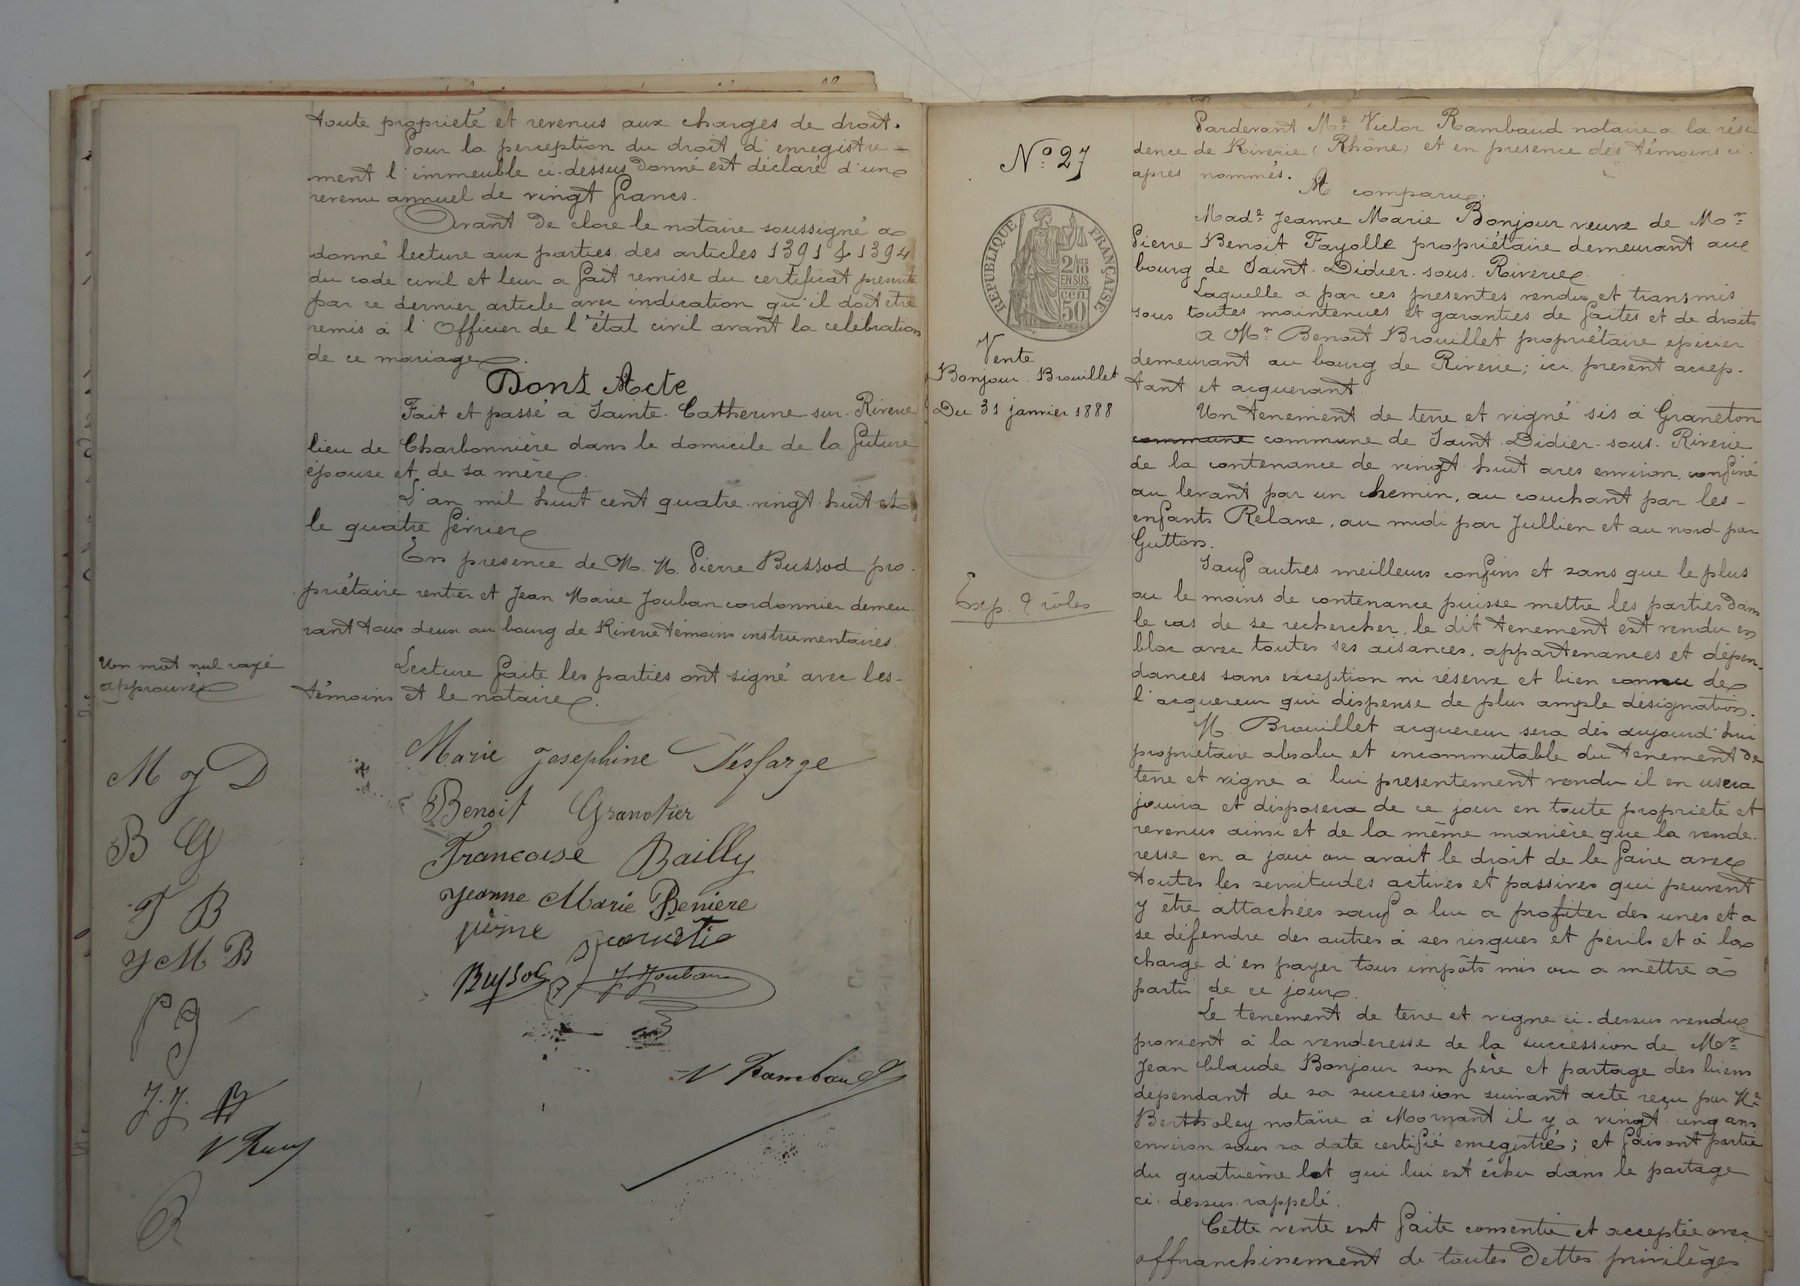 toute propriété et revenus aux charges de droit.
Pour la perception du droit d'enregistre-
ment l'immeuble ci-dessus donné est déclaré d'un
revenu annuel de vingt francs.
Avant de clore le notaire soussigné a
donné lecture aux parties des articles 1391 & 1394
du code civil et leur a fait remise du certificat prescrit
par ce dernier article avec indication qu'il doit être
remis à l'Officier de l'état civil avant la célébration
de ce mariage.
Dont Acte
Fait et passé à Sainte-Catherine-sur-Riverie
lieu de Charbonnière dans le domicile de la future
épouse et de sa mère.
L'an mil huit cent quatre-vingt-huit et
le quatre février
En présence de M. M. Pierre Bussod pro-
priétaire rentier et Jean Marie Jouban cordonnier demeu
rant tous deux au bourg de Riverie témoins instrumentaires.
Lecture faite les parties ont signé avec les-
témoins et le notaire.
Un mot nul rayé
approuvé
Marie Josephine Desfarge
Benoit Granotier
Francoise Bailly
Jeanne Marie Beniere
pierre
Bussod J. Jouban
V Rambaud
M J D
B G
F B
J M B
P G
J. J. B
V Ram
R
N° 27
REPUBLIQUE FRANÇAISE
2/10 EN SUS
50 cen
Vente
Bonjour Brouillet
Du 31 janvier 1888
Exp. 2 rôles
Pardevant Me Victor Rambaud notaire a la rési
dence de Riverie (Rhône) et en présence des témoins ci-
après nommés.
A comparu:
Made Jeanne Marie Bonjour veuve de Mr
Pierre Benoit Fayolle propriétaire demeurant au
bourg de Saint-Didier-sous-Riverie
Laquelle a par ces présentes vendu et transmis
sous toutes maintenues et garanties de faites et de droits
A Mr Benoit Brouillet propriétaire épicier
demeurant au bourg de Riverie; ici présent accep-
tant et acquerant.
Un tenement de terre et vigne sis à Graneton
commune commune de Saint-Didier-sous-Riverie
de la contenance de vingt-huit ares environ, confiné
au levant par un chemin, au couchant par les-
enfants Relave, au midi par Jullien et au nord par
Gutton.
Sauf autres meilleurs confins et sans que le plus
ou le moins de contenance puisse mettre les parties dans
le cas de se rechercher, le dit tenement est vendu en
bloc avec toutes ses aisances, appartenances et dépen-
dances sans exception ni réserve et bien connu de
l'acquereur qui dispense de plus ample désignation.
M. Brouillet acquereur sera dès aujourd'hui
propriétaire absolu et incommutable du tenement de
terre et vigne à lui présentement vendu il en usera
jouira et disposera de ce jour en toute propriété et
revenus ainsi et de la même manière que la vende-
resse en a joui ou avait le droit de le faire avec
toutes les servitudes actives et passives qui peuvent
y être attachées sauf à lui a profiter des unes et a
se défendre des autres à ses risques et périls et à la
charge d'en payer tous impôts mis ou a mettre à
partir de ce jour.
Le tenement de terre et vigne ci-dessus vendu
provient à la venderesse de la succession de Mr
Jean Claude Bonjour son père et partage des biens
dépendant de sa succession suivant acte reçu par Me
Bertholey notaire à Mornant il y a vingt cinq ans
environ sous sa date certifié enregistré; et faisant partie
du quatrième lot qui lui est échu dans le partage
ci-dessus rappelé.
Cette vente est faite consentie et acceptée avec
affranchissement de toutes dettes privilèges